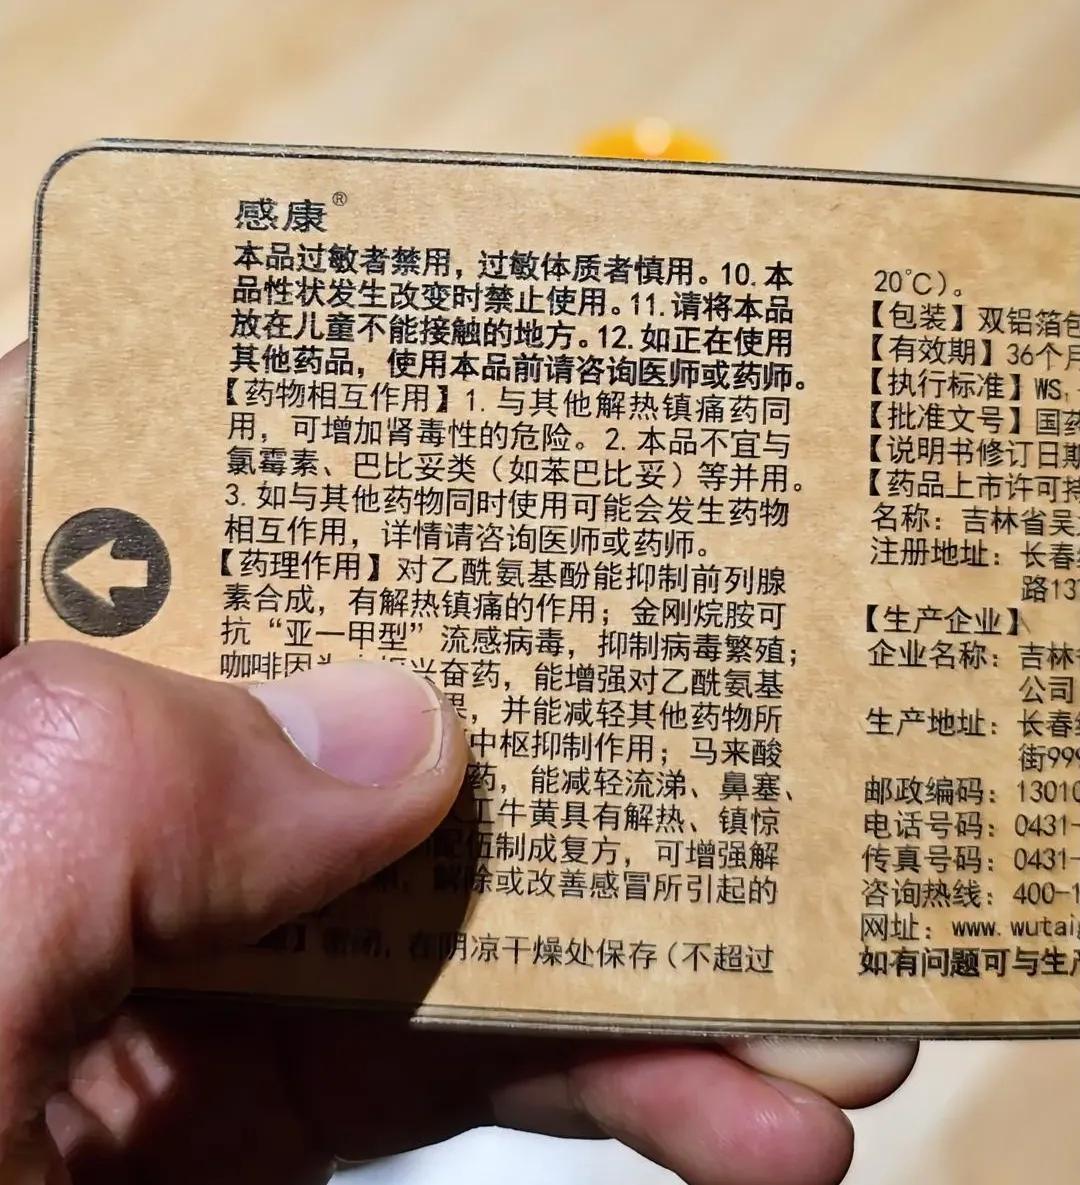 感康®
本品过敏者禁用，过敏体质者慎用。10.本
品性状发生改变时禁止使用。11.请将本品
放在儿童不能接触的地方。12.如正在使用
其他药品，使用本品前请咨询医师或药师。
【药物相互作用】1.与其他解热镇痛药同
用，可增加肾毒性的危险。2.本品不宜与
氯霉素、巴比妥类（如苯巴比妥）等并用。
3.如与其他药物同时使用可能会发生药物
相互作用，详情请咨询医师或药师。
【药理作用】对乙酰氨基酚能抑制前列腺
素合成，有解热镇痛的作用；金刚烷胺可
抗“亚一甲型”流感病毒，抑制病毒繁殖；
咖啡因 兴奋药，能增强对乙酰氨基
果，并能减轻其他药物所
中枢抑制作用；马来酸
药，能减轻流涕、鼻塞、
工牛黄具有解热、镇惊
配伍制成复方，可增强解
解除或改善感冒所引起的
在阴凉干燥处保存（不超过
20℃）。
【包装】双铝箔包
【有效期】36个月
【执行标准】WS
【批准文号】国药
【说明书修订日期
【药品上市许可持
名称：吉林省吴
注册地址：长春
路13
【生产企业】
企业名称：吉林
公司
生产地址：长春
街999
邮政编码：13010
电话号码：0431-
传真号码：0431-
咨询热线：400-1
网址：www.wutai
如有问题可与生产